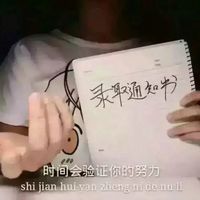 录取通知书
时间会验证你的努力
shi jian hui yan zheng ni de nu li